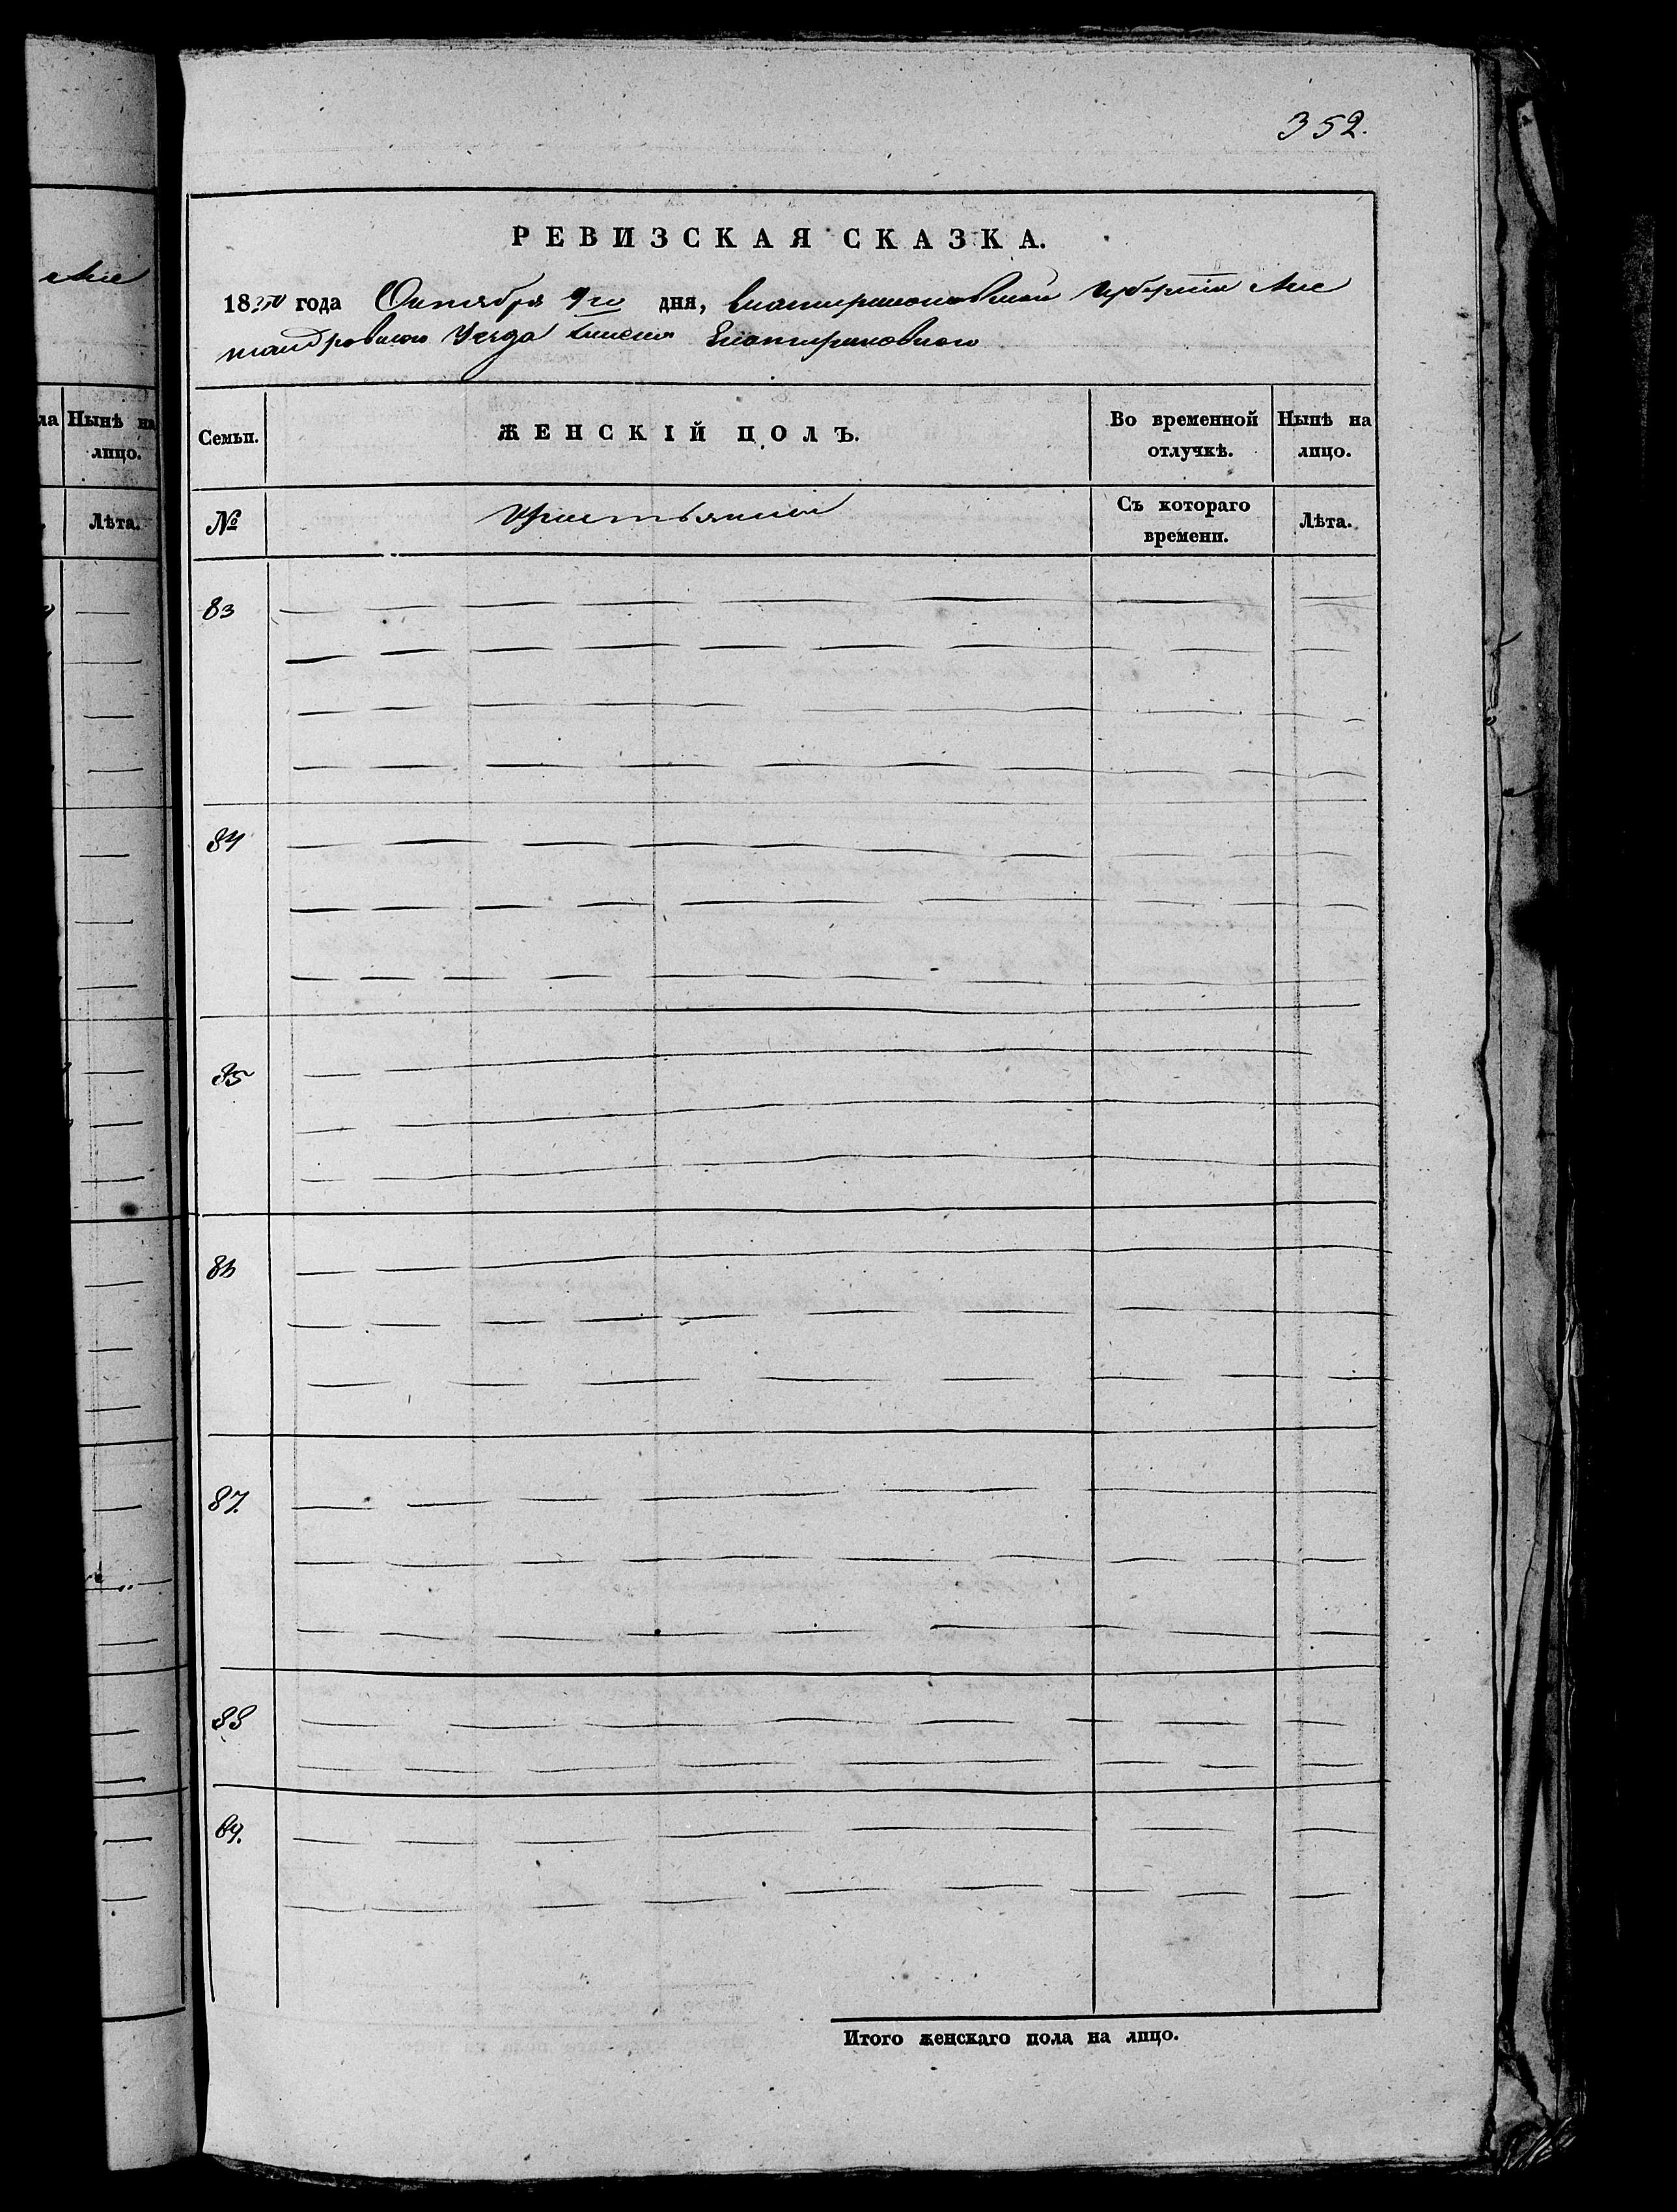 352.
РЕВИЗСКАЯ СКАЗКА.
1850 года Октября 9го дня, Екатеринославской Губернiи Алек
сандровского Уезда имения Екатериновского
ла Нынѣ на лицо.
Лѣта.
Семьи. ЖЕНСКІЙ ПОЛЪ. Во временной отлучкѣ. Нынѣ на лицо.
№ Крестьянки Съ котораго времени. Лѣта.
83
84
85
86
87.
88
89.
Итого женскаго пола на лицо.